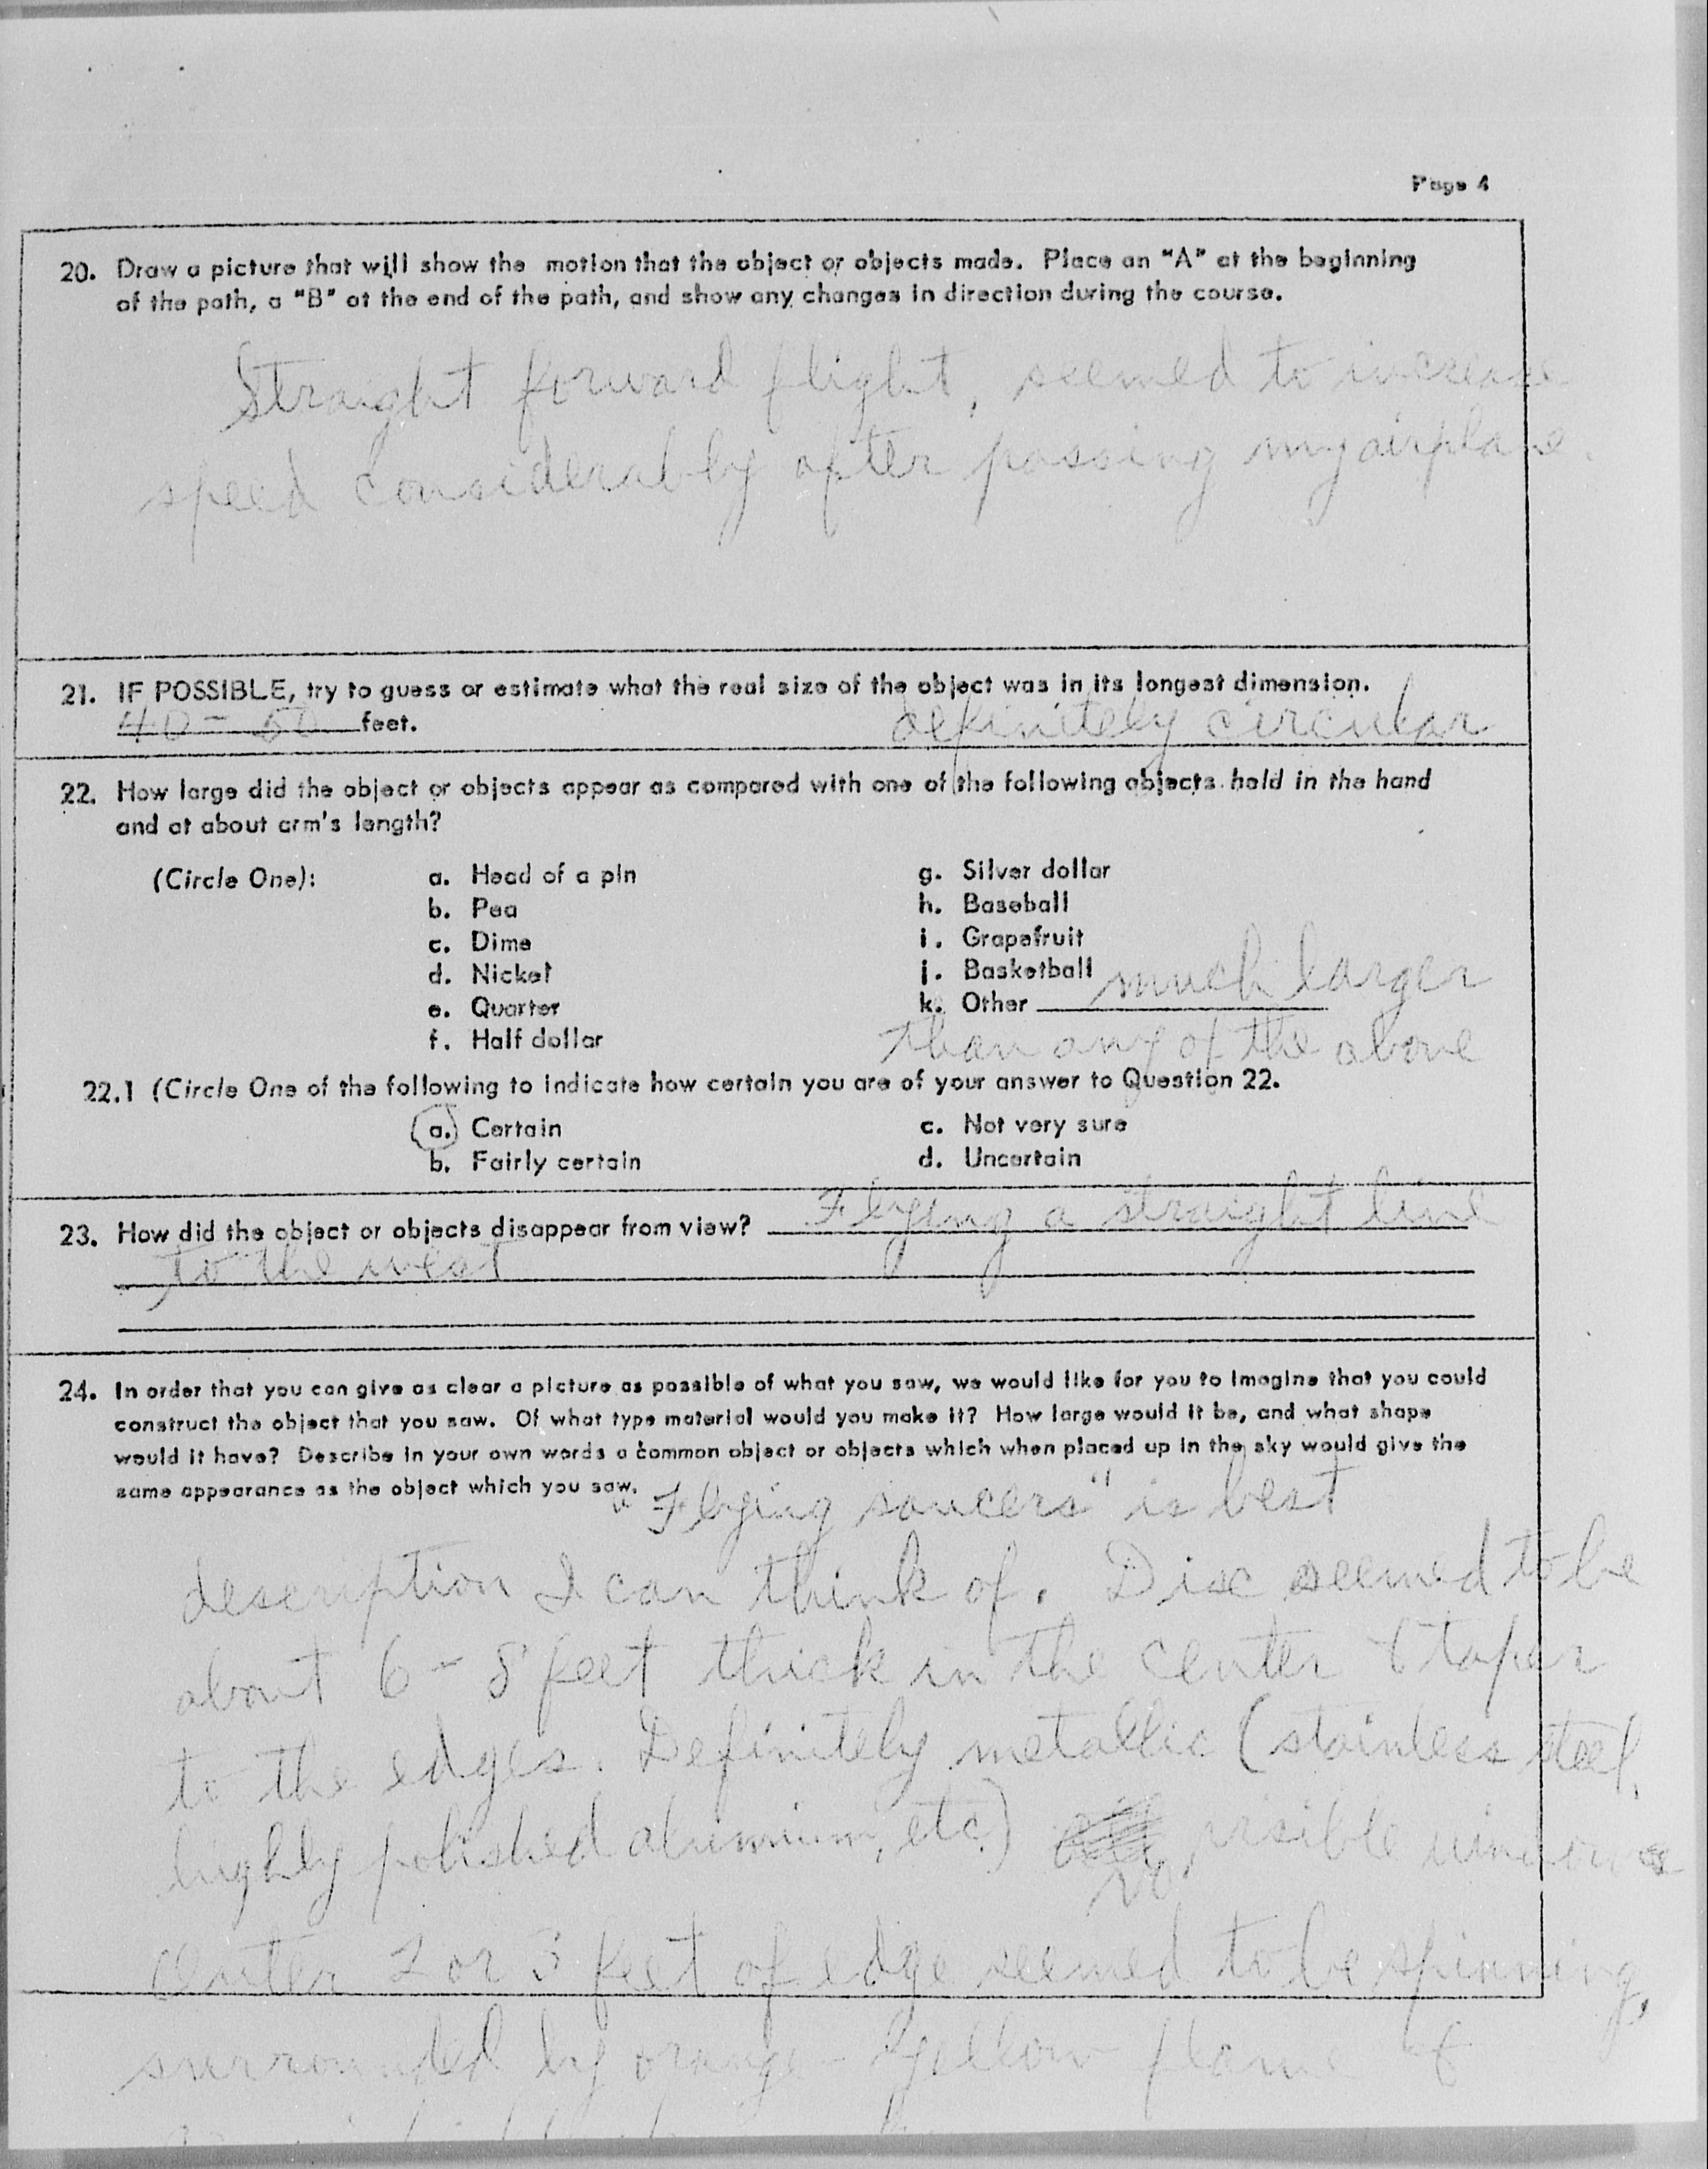 Page 4
20. Draw a picture that will show the motion that the object or objects made. Place an "A" at the beginning
of the path, a "B" at the end of the path, and show any changes in direction during the course.
Straight forward flight, seemed to increase
speed considerably after passing my airplane.
21. IF POSSIBLE, try to guess or estimate what the real size of the object was in its longest dimension.
40 - 50 feet. definitely circular
22. How large did the object or objects appear as compared with one of the following objects held in the hand
and at about arm's length?
(Circle One): a. Head of a pin g. Silver dollar
b. Pea h. Baseball
c. Dime i. Grapefruit
d. Nickel j. Basketball
e. Quarter k. Other much larger
f. Half dollar than any of the above
22.1 (Circle One of the following to indicate how certain you are of your answer to Question 22.
a. Certain c. Not very sure
b. Fairly certain d. Uncertain
23. How did the object or objects disappear from view? Flying a straight line
to the west
24. In order that you can give as clear a picture as possible of what you saw, we would like for you to imagine that you could
construct the object that you saw. Of what type material would you make it? How large would it be, and what shape
would it have? Describe in your own words a common object or objects which when placed up in the sky would give the
same appearance as the object which you saw.
"Flying saucers" is best
description I can think of. Disc seemed to be
about 6 - 8 feet thick in the center & taper
to the edges. Definitely metallic (stainless steel,
highly polished aluminum, etc.) No visible windows
2 or 3 feet of edge seemed to be spinning,
surrounded by orange - yellow flame &